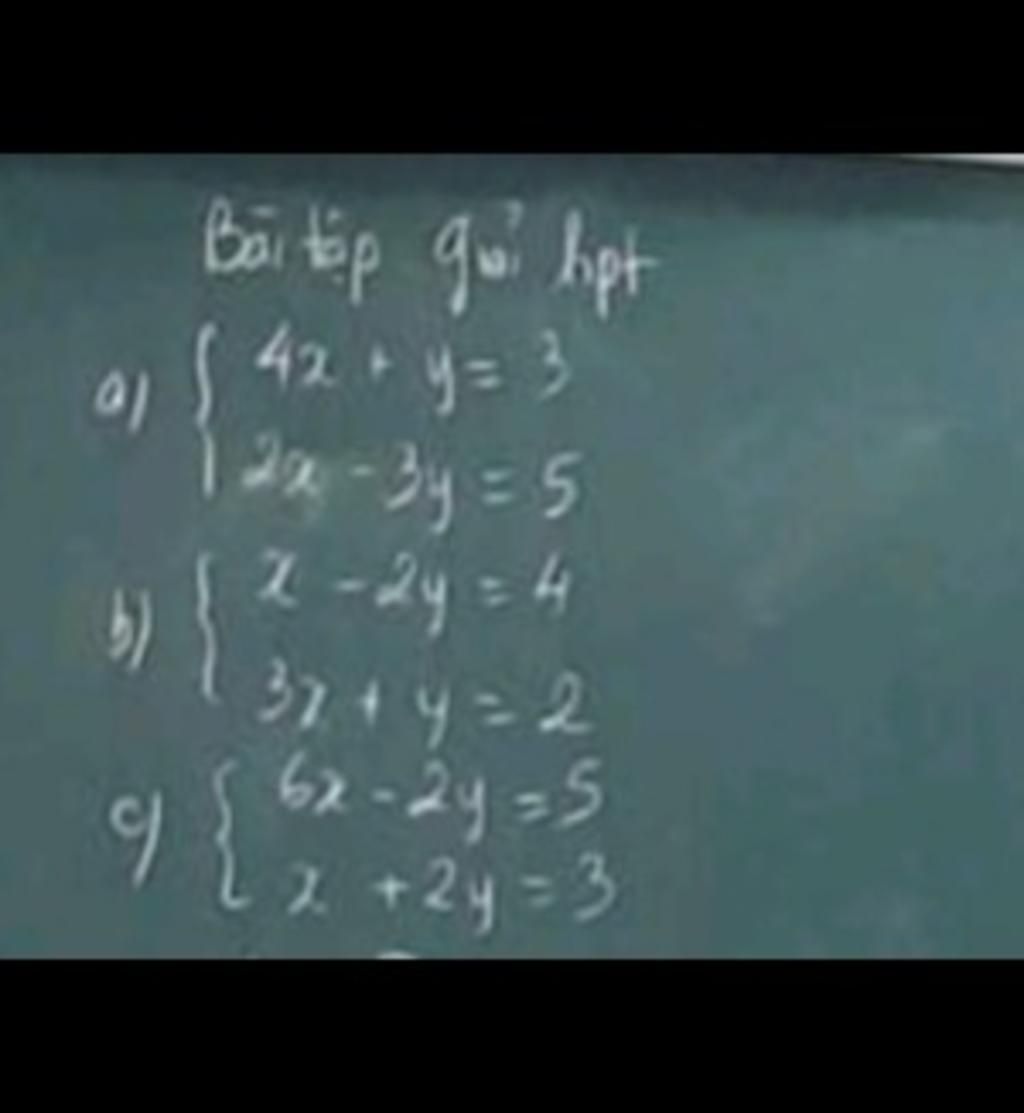 Bài tập giải hpt
a) { 4x + y = 3
2x - 3y = 5
b) { x - 2y = 4
3x + y = 2
c) { 6x - 2y = 5
x + 2y = 3